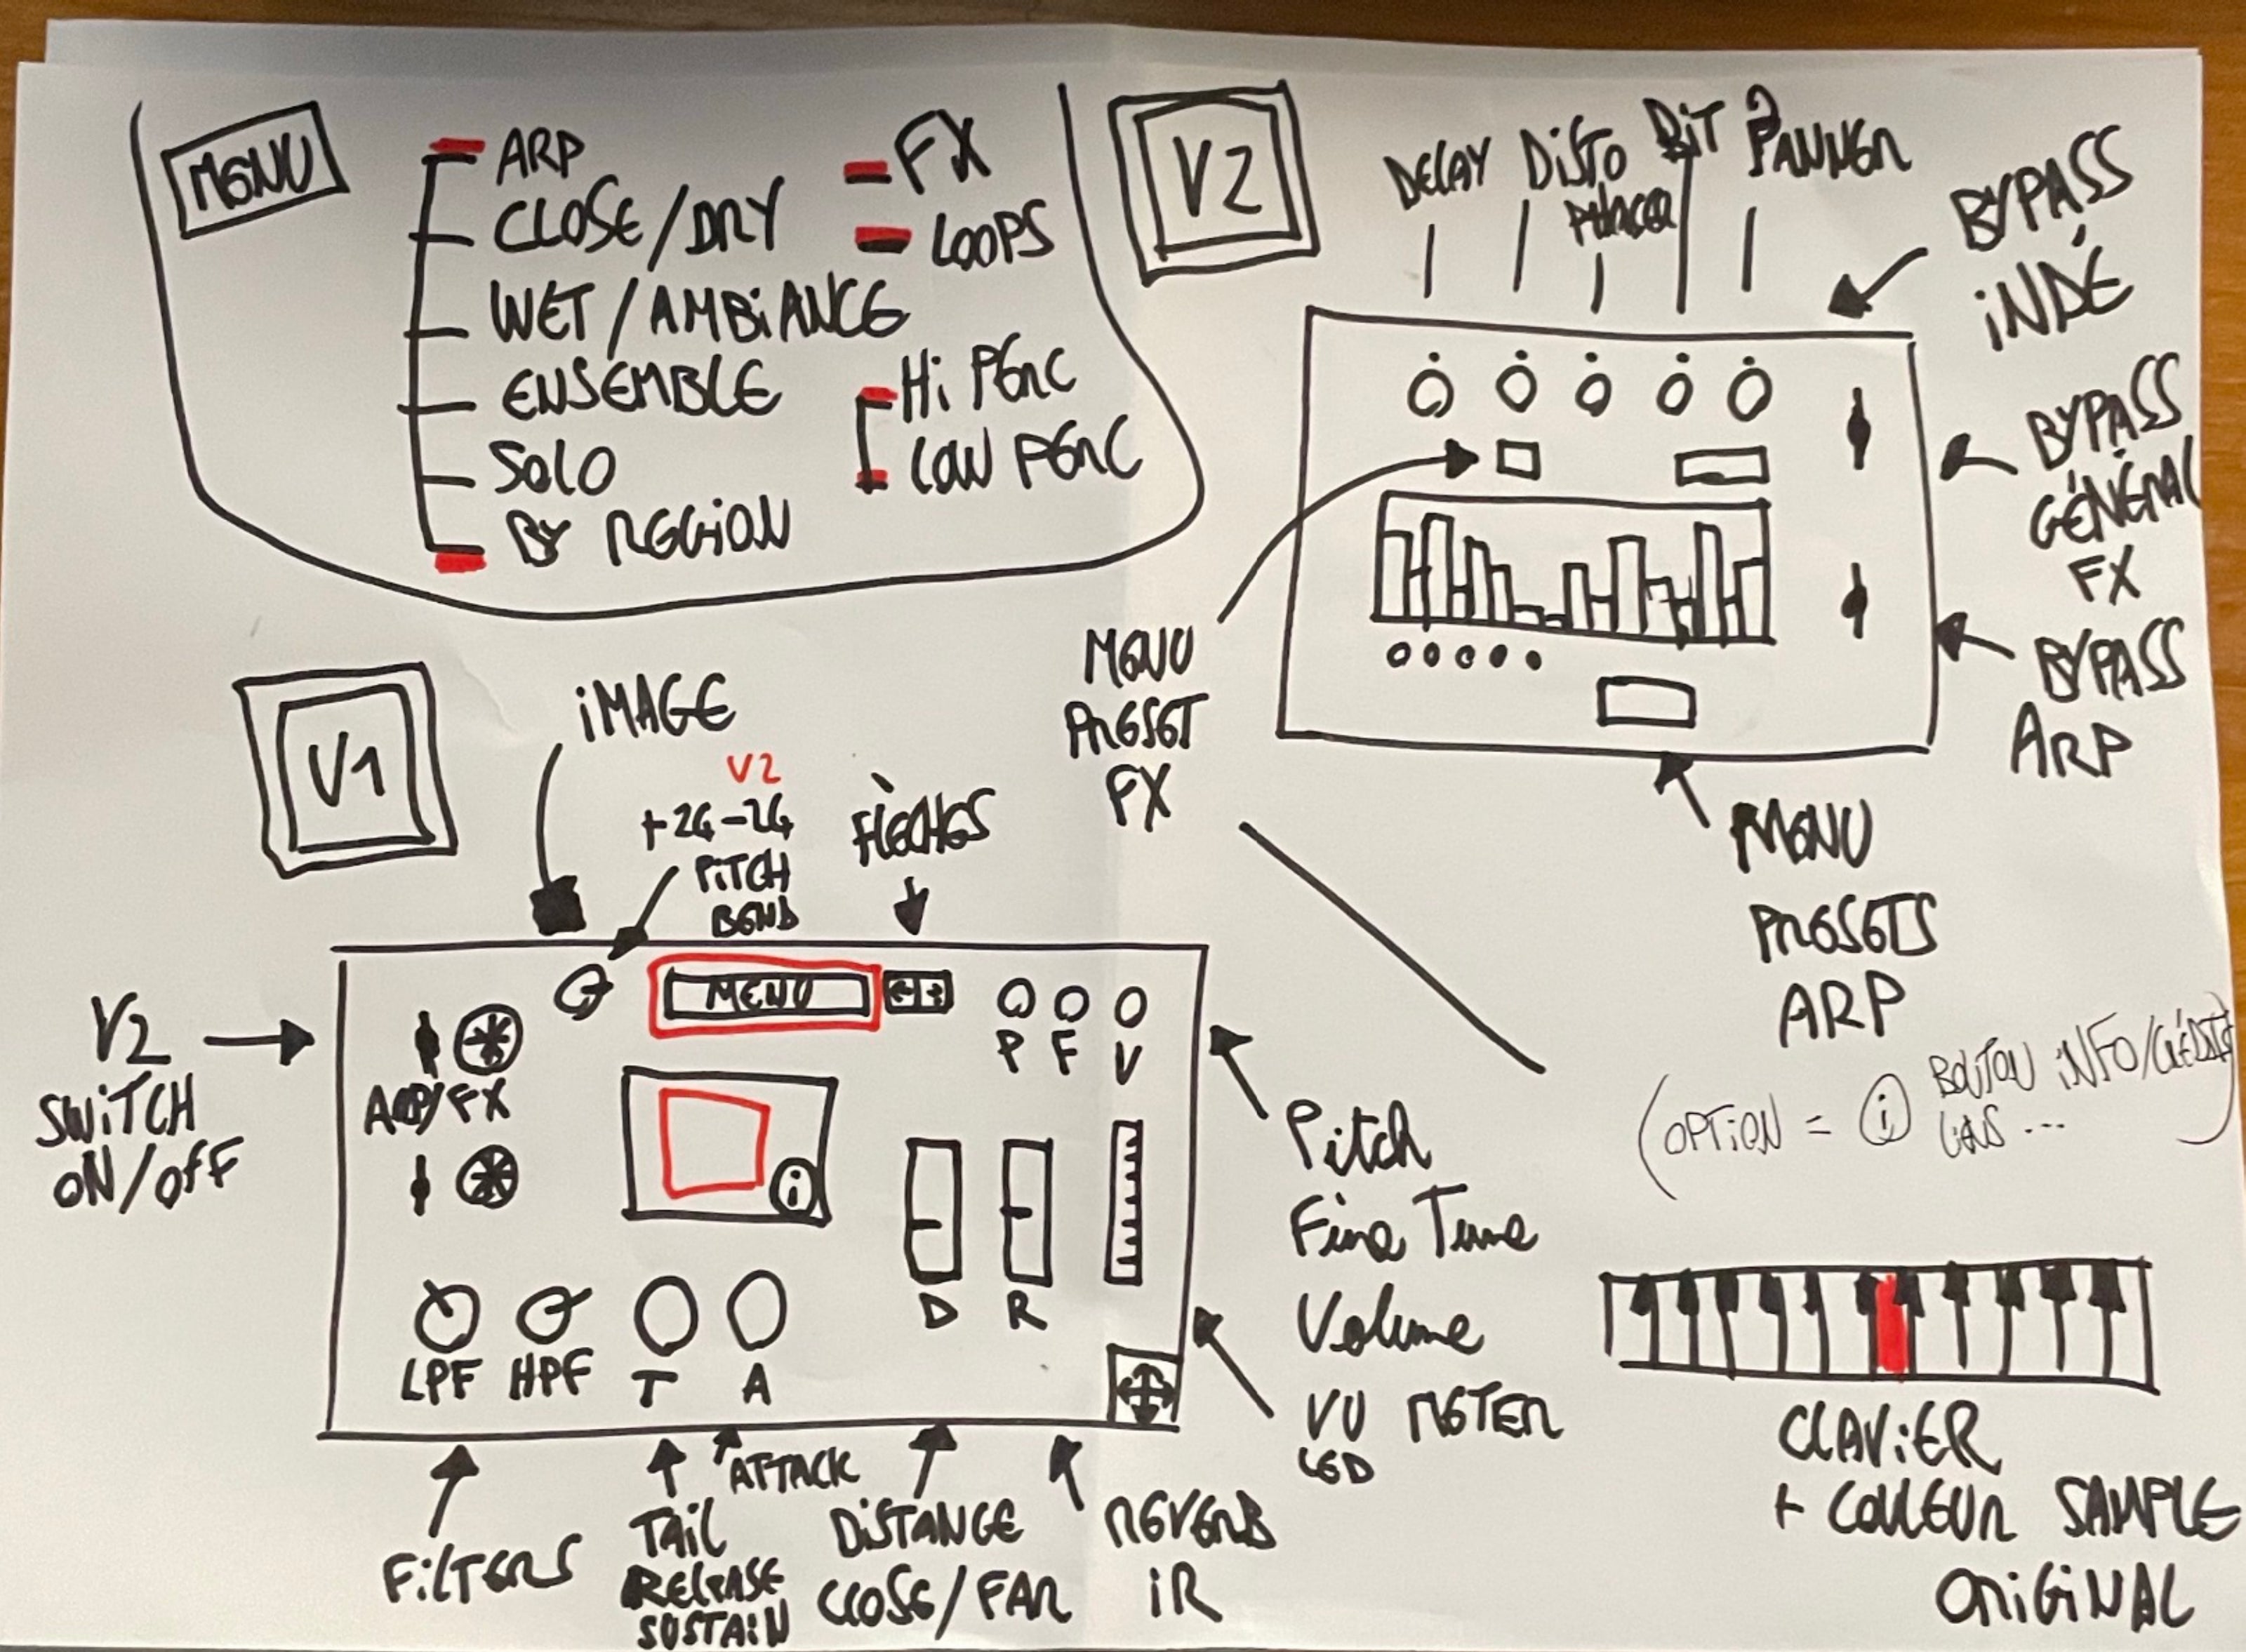 MENU
ARP
CLOSE/DRY
WET/AMBiANCE
ENSEMBLE
SOLO
BY REGiON
FX
LOOPS
Hi PERC
LOW PERC
V2
DELAY
DiSTO
PHASER
BiT
?
PANNER
BYPASS
iNDÉ
BYPASS
GÉNÉRAL
FX
BYPASS
ARP
MENU
PRESET
FX
MENU
PRESETS
ARP
V1
iMAGE
V2
+24-24
PiTCH
BEND
FLÈCHES
V2
SWiTCH
ON/OFF
MENU
P F V
ARP/FX
i
D R
LPF HPF T A
Pitch
Fine Tune
Volume
VU METER
LED
FiLTERS
TAiL
RELEASE
SUSTAiN
ATTACK
DiSTANCE
CLOSE/FAR
REVERB
iR
(OPTiON = i BOUTON iNFO/CRÉDiTS
LiENS ...)
CLAViER
+ COULEUR SAMPLE
ORiGiNAL